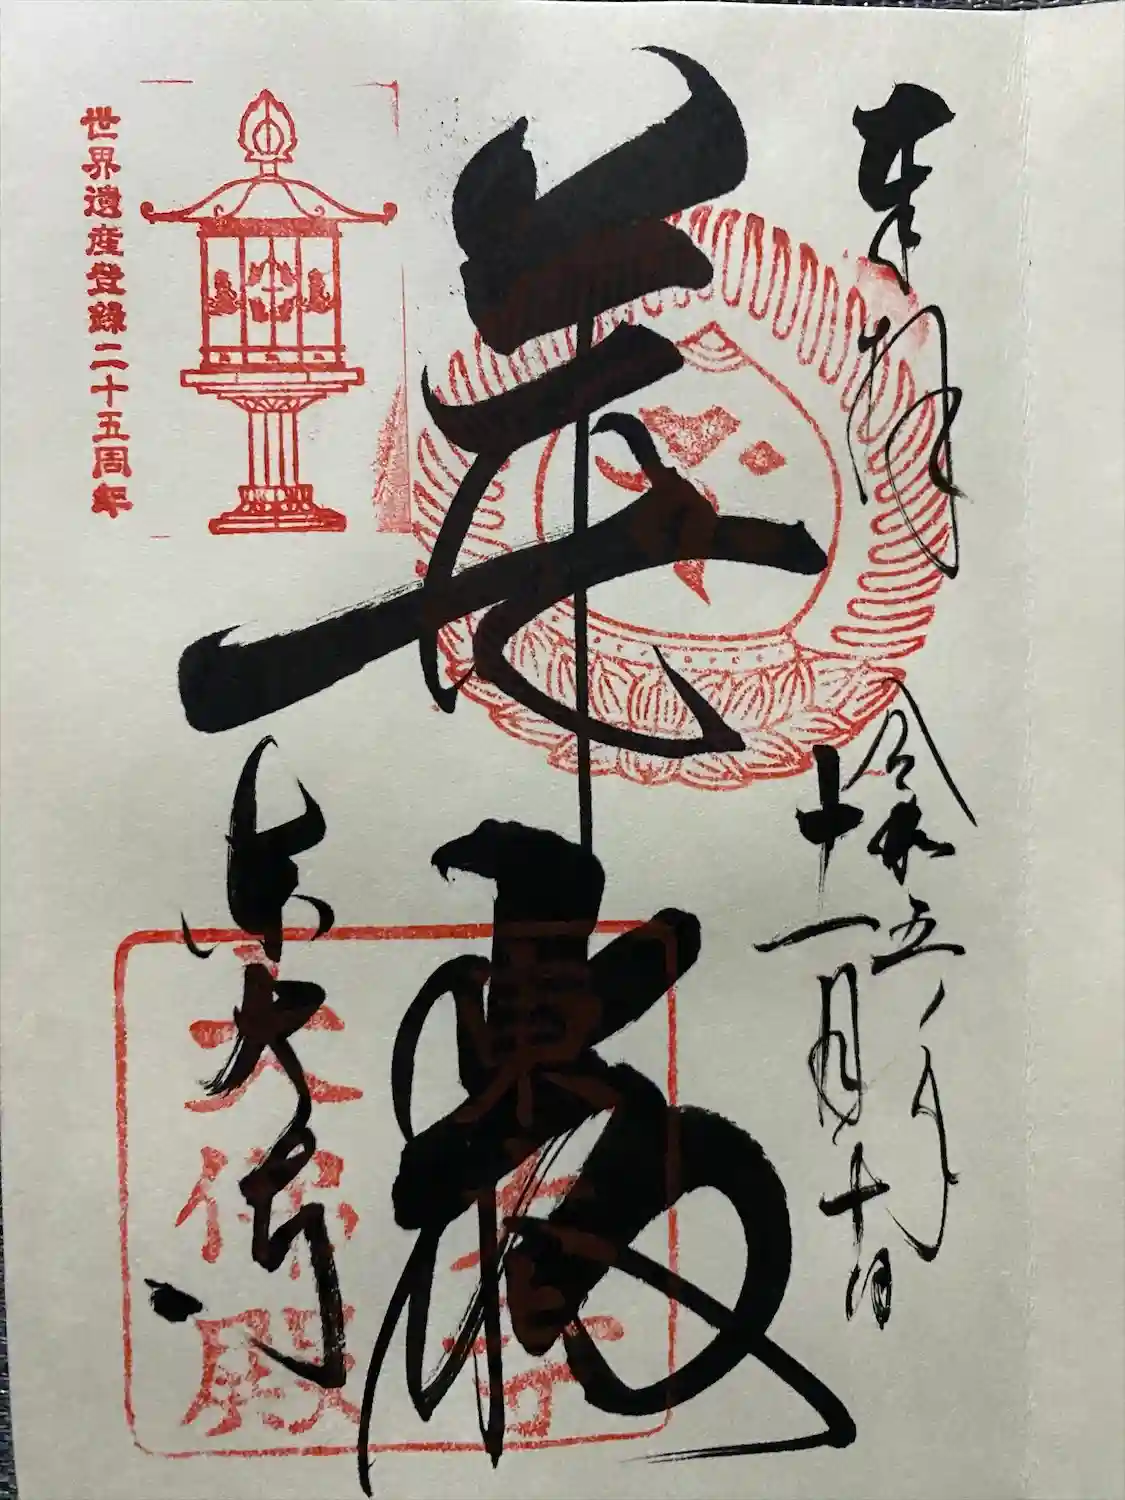 奉拝
令和五年
十一月十日
華厳
東大寺
世界遺産登録二十五周年
東大寺
大仏殿